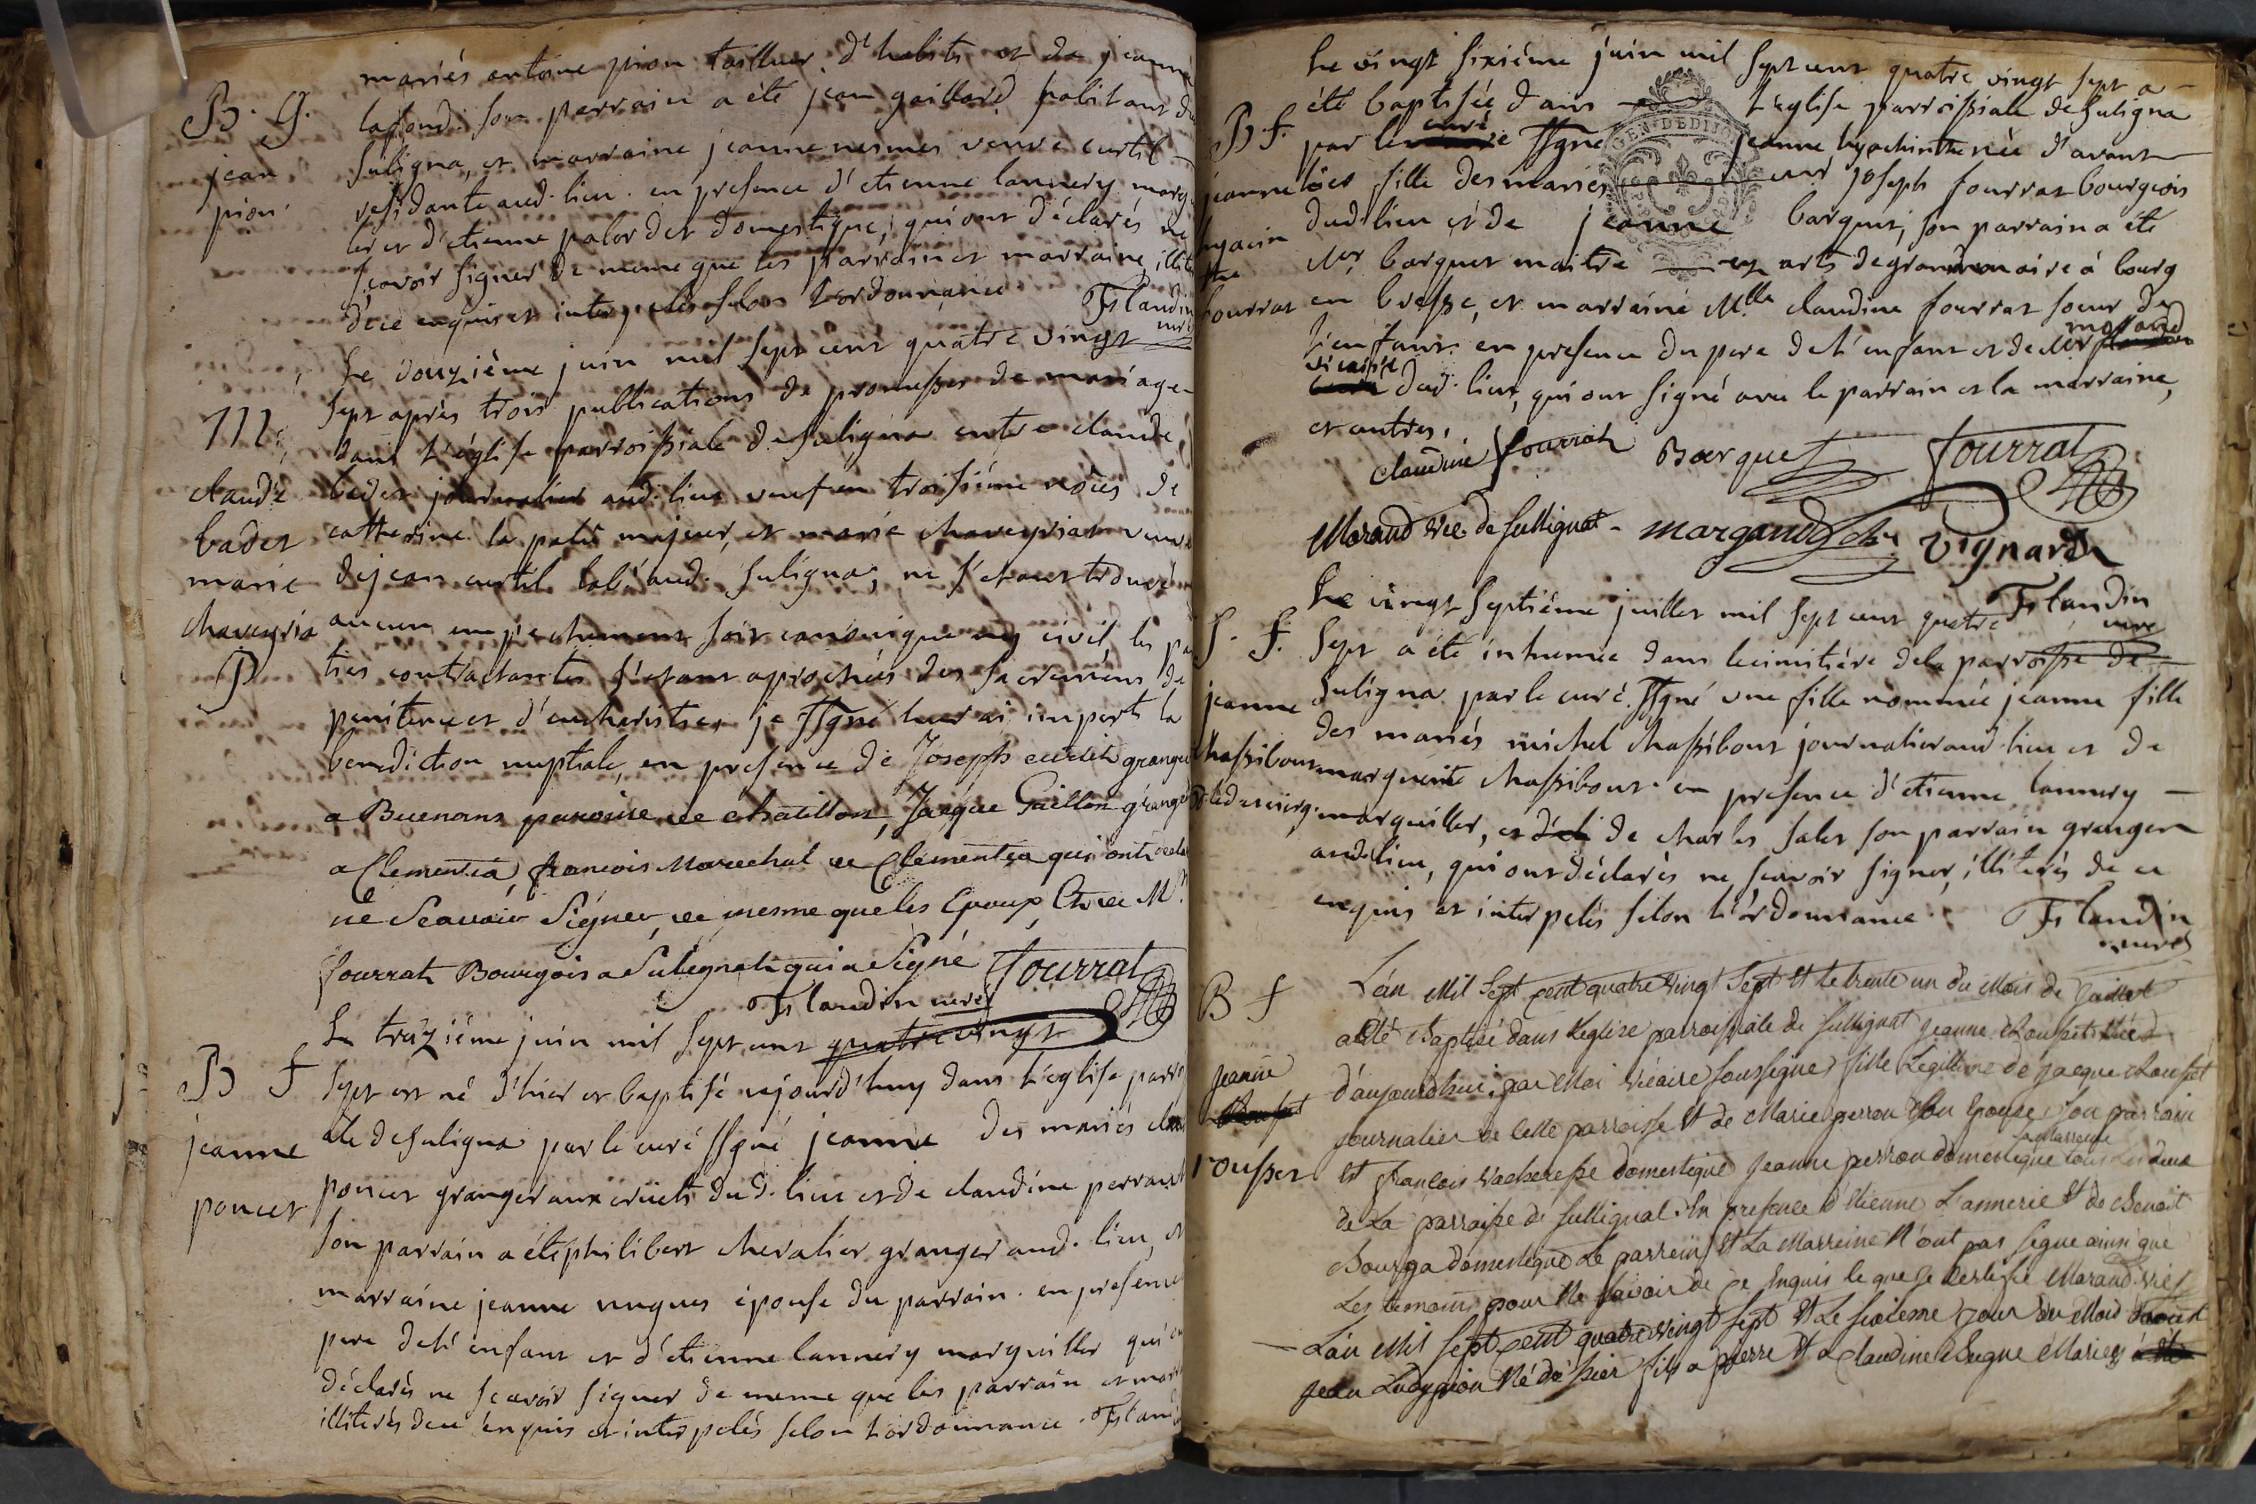 B. G.
jean
pion.
mariés antoine pion tailleur d'habits et de jeanne
lafond. son parrain a été jean gaillard habitant du
suligna, et marraine jeanne nesmes veuve curtil
residante aud. lieu. en presence d'etienne lannery marg
ler et d'etienne palordet domestique, qui ont déclarés ne
scavoir signer de meme que les parrain et marraine, illite
de ce enquis et interpelés selon l'ordonnance Flandin
curé
M.
claude
badet
marie
chaveyria
P
Le douzième juin mil sept cent quatre vingt
sept après trois publications de promesses de mariage
dans l'église parroissiale de suligna entre claude
badet journalier aud. lieu veuf en troisième noces de
catherine la pate majeur, et marie chaveyriat veuve
de jean curtil lab. aud. suligna; ne s'etant trouvé
aucun empechement soit canonique ny civil, les par
ties contractantes s'etant aprochées des sacremens de
penitence et d'eucharistie, je ssgné leur ai imparti la
benediction nuptiale, en presence de Joseph curtil granger
a Buenans paroisse de chatillon, Jacque Paillon granger
a Clementia, francois Marechal de Clementia qui ont decla
ne Scavoir Signer, de mesme que les Epoux, Et de Mr.
fourrat Bourgois a Sulegnat qui a Signé fourrat
Flandin curé
B f
jeanne
poncet
Le treizième juin mil sept cent quatre vingt
sept est né d'hier et baptisé aujourd'huy dans l'église parroi
ale de suligna par le curé ssgné jeanne des mariés
poncet granger aux cruets dud. lieu et de claudine perraud
son parrain a été philibert chevalier granger aud. lieu, et
marraine jeanne nugues épouse du parrain. en presence
pere de l'enfant et d'etienne lannery marguiller qui
déclarés ne scavoir signer de meme que les parrain et mar
illiterés de ce enquis et interpelés selon l'ordonnance. Flandin
B f.
jeanne
hyacin
the
fourrat
Le vingt sixième juin mil sept cent quatre vingt sept a
été baptisée dans l'église parroissiale de suligna
par le curé ssgné jeanne hyachinthe née d'avant
GEN. DE DIJON
fille des mariés joseph fourrat bourgeois
dud. lieu et de jeanne barquet; son parrain a été
barquet maitre es arts de grammaire à bourg
en bresse, et marraine Mlle claudine fourrat soeur de
l'enfant. en presence du pere de l'enfant et de Mr morand
vicaire dud. lieu, qui ont signé avec le parrain et la marraine,
et autres,
claudine fourrat Barquet fourrat
Morand vic. de sullignat margand Vignard
Flandin
curé
S. f.
jeanne
chassibout
Le vingt septième juillet mil sept cent quatre
sept a été inhumée dans le cimitière de la parroisse de
suligna par le curé ssgné une fille nommée jeanne fille
des mariés michel chassibout journalier aud. lieu et de
marguerite chassibout. en presence d'etienne lannery
marguiller, et de charles sales son parrain granger
aud. lieu, qui ont déclarés ne scavoir signer, illiterés de ce
enquis et interpelés selon l'ordonnance. Flandin
curé
B f
jeanne
rousset
L'an Mil Sept cent quatre vingt Sept et le trente un du Mois de Juillet
a été Baptisé dans l'eglise parroissiale de sullignat jeanne Rousset Née
d'aujourd'hui par Moi vicaire soussigné fille Legitime de jacque Rousset
journalier de cette parroisse et de Marie perron son Epouse son parrain
et francois vacheresse domestique jeanne perron domestique sa Marreine tous Les deux
de La parroisse de sullignat. En presence d'Etienne Lannerie et de Benoit
Bourga domestique Le parrein et La Marreine N'ont pas signe ainsi que
Les temoins pour Ne savoir de ce Enquis le que je Certifie Morand vic
L'an Mil sept cent quatre vingt sept et Le sixieme jour du Mois d'aout
jean Ladignion Né d'hier fils a pierre et a Claudine Chugne Mariés